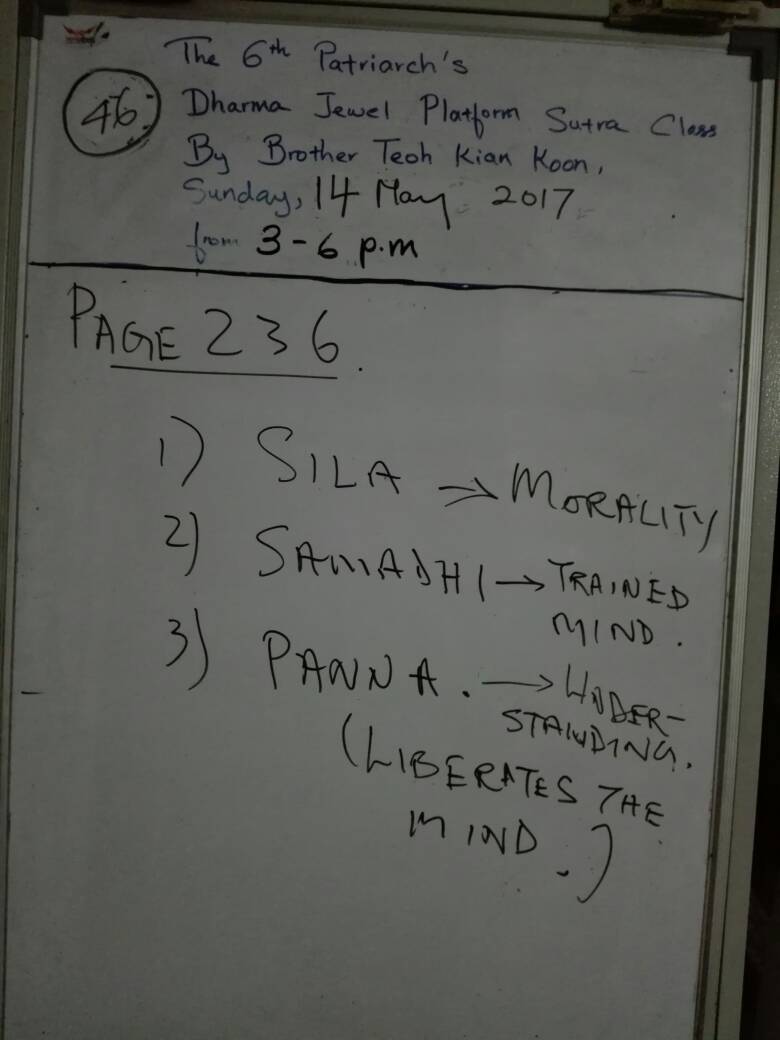 The 6th Patriarch's
46 Dharma Jewel Platform Sutra Class
By Brother Teoh Kian Koon,
Sunday, 14 May 2017
from 3-6 p.m
PAGE 236.
1) SILA ⇒ MORALITY
2) SAMADHI → TRAINED
MIND.
3) PANNA. → UNDER-
STANDING.
(LIBERATES THE
MIND.)